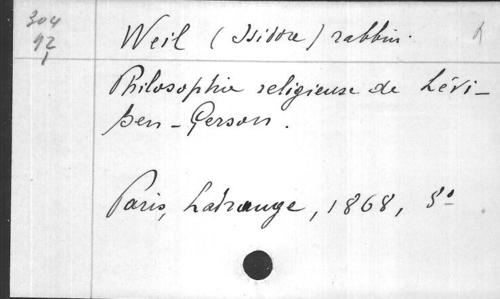 304
12
1
Weil (Isidore) rabbin.
Philosophie religieuse de Lévi-
ben-Gerson.
Paris, Ladrange, 1868, 8°